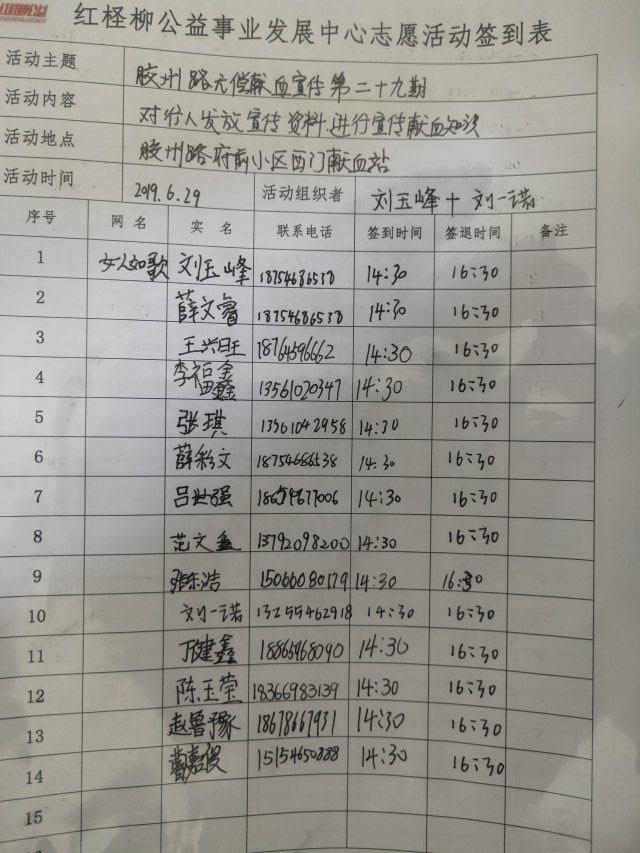 红柽柳公益事业发展中心志愿活动签到表
活动主题 胶州路无偿献血宣传第二十九期
活动内容 对行人发放宣传资料进行宣传献血知识
活动地点 胶州路府前小区西门献血站
活动时间 2019.6.29 活动组织者 刘玉峰+刘一诺
序号 网名 实名 联系电话 签到时间 签退时间 备注
1 女人如歌 刘玉峰 18754686538 14:30 16:30
2 薛文睿 18754686538 14:30 16:30
3 王兴旺 18764596662 14:30 16:30
4 李福鑫 13561020347 14:30 16:30
5 张琪 13561042958 14:30 16:30
6 薛彩文 18754686538 14:30 16:30
7 吕世强 14:30 16:30
8 范文鑫 13792098200 14:30 16:30
9 张东浩 15066080179 14:30 16:30
10 刘一诺 13255462918 14:30 16:30
11 丁健鑫 18865968090 14:30 16:30
12 陈玉莹 18366983139 14:30 16:30
13 赵鲁豫 18678667931 14:30 16:30
14 15154650888 14:30 16:30
15